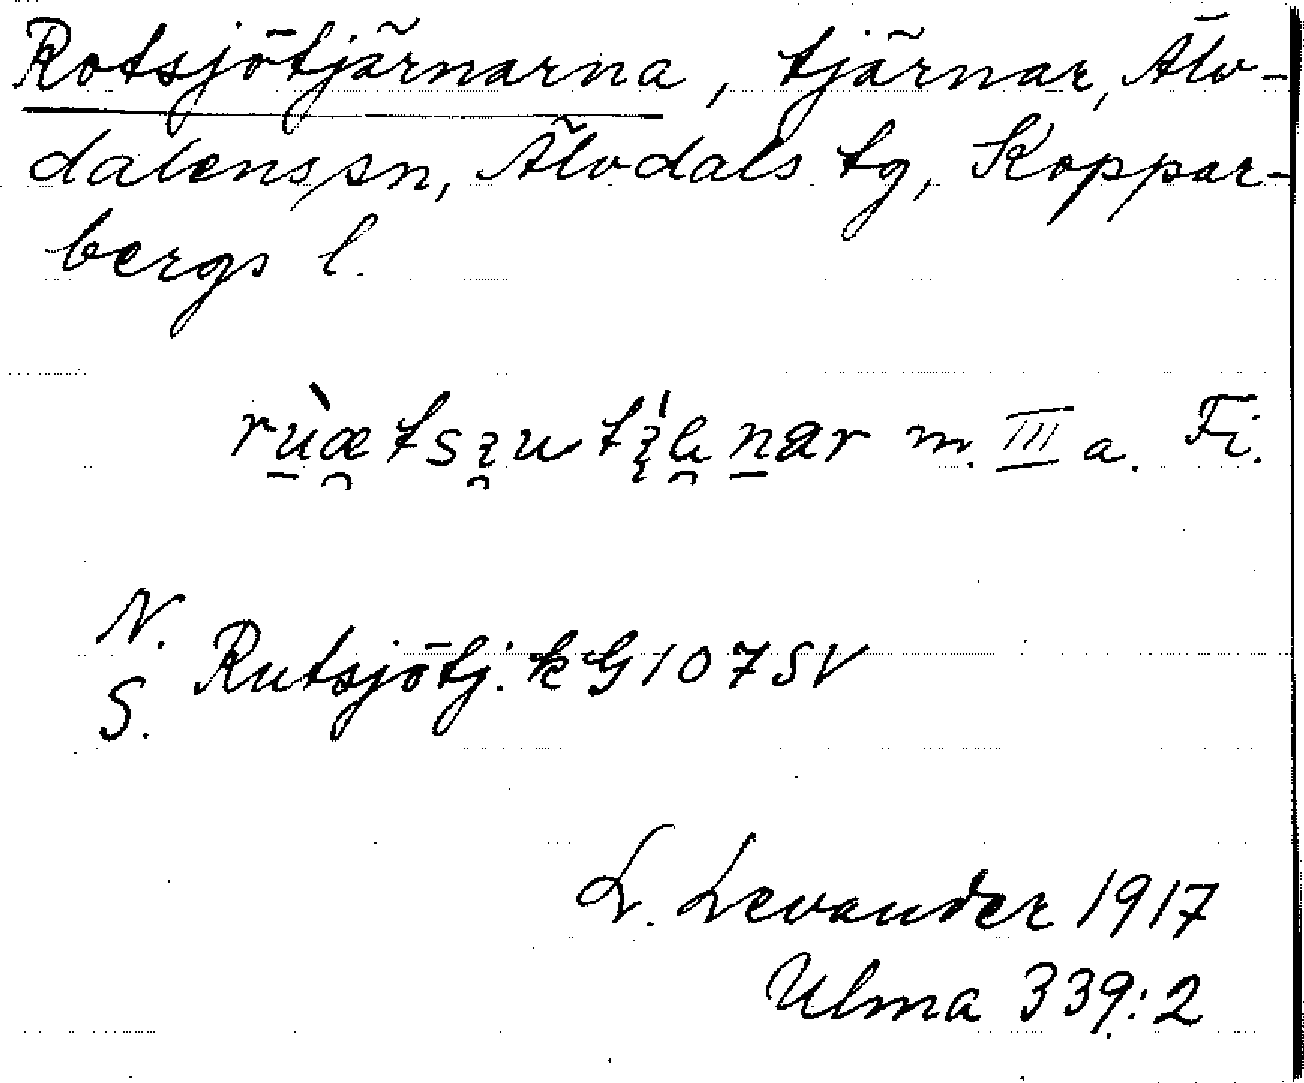 Rotsjötjärnarna, tjärnar, Älv-
dalens sn, Älvdals tg, Koppar-
bergs l.
m. III a. Fi.
N.
S. Rutsjötj. kG 107 SV
L. Levander 1917
Ulma 339:2